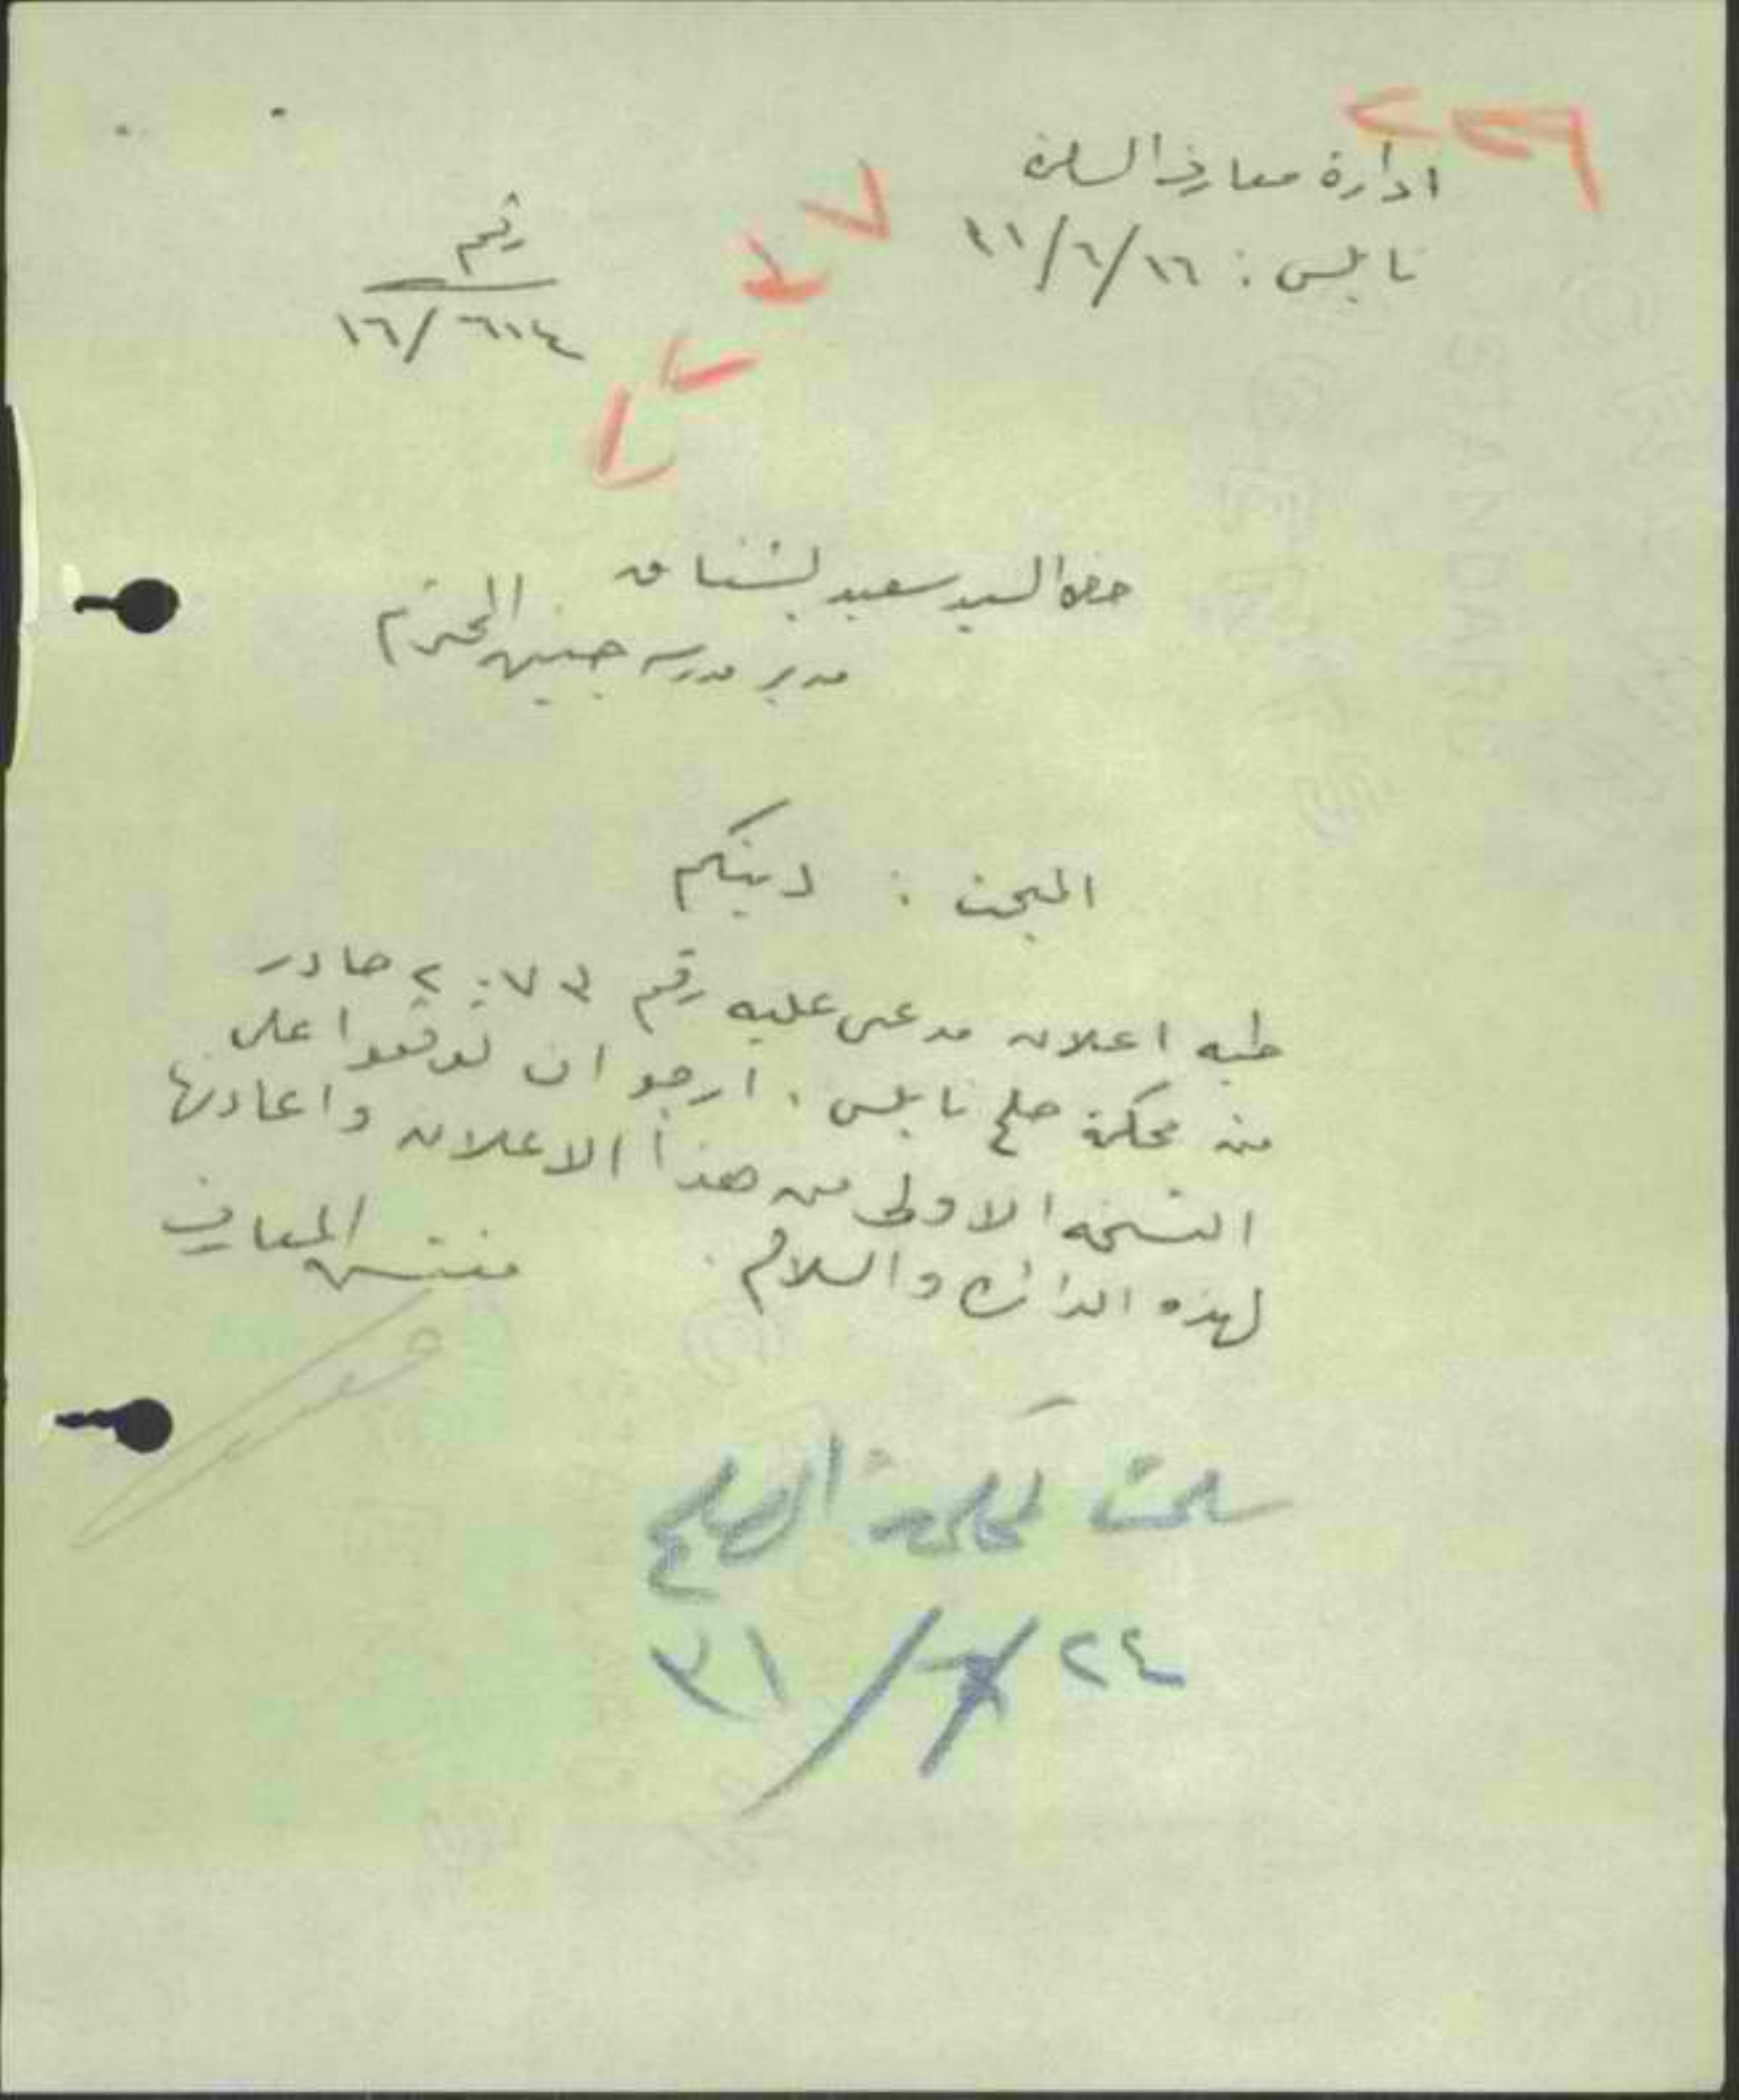 ادارة معارف السامرة
نابلس : ١٦/٦/٣١
رقم
١٦/٦١٤
حضرة السيد سعيد بشناق
مدير مدرسة جنين المحترم
البحث : دينكم
طيه اعلان مدعى عليه رقم ٢٠٧٣ صادر
من محكمة صلح نابلس . ارجو ان توقعوا على
النسخة الاولى من هذا الاعلان واعادتها
لهذه الدائرة والسلام .
مفتش المعارف
سلمت لمحكمة الصلح
٢٤/٦/٣١